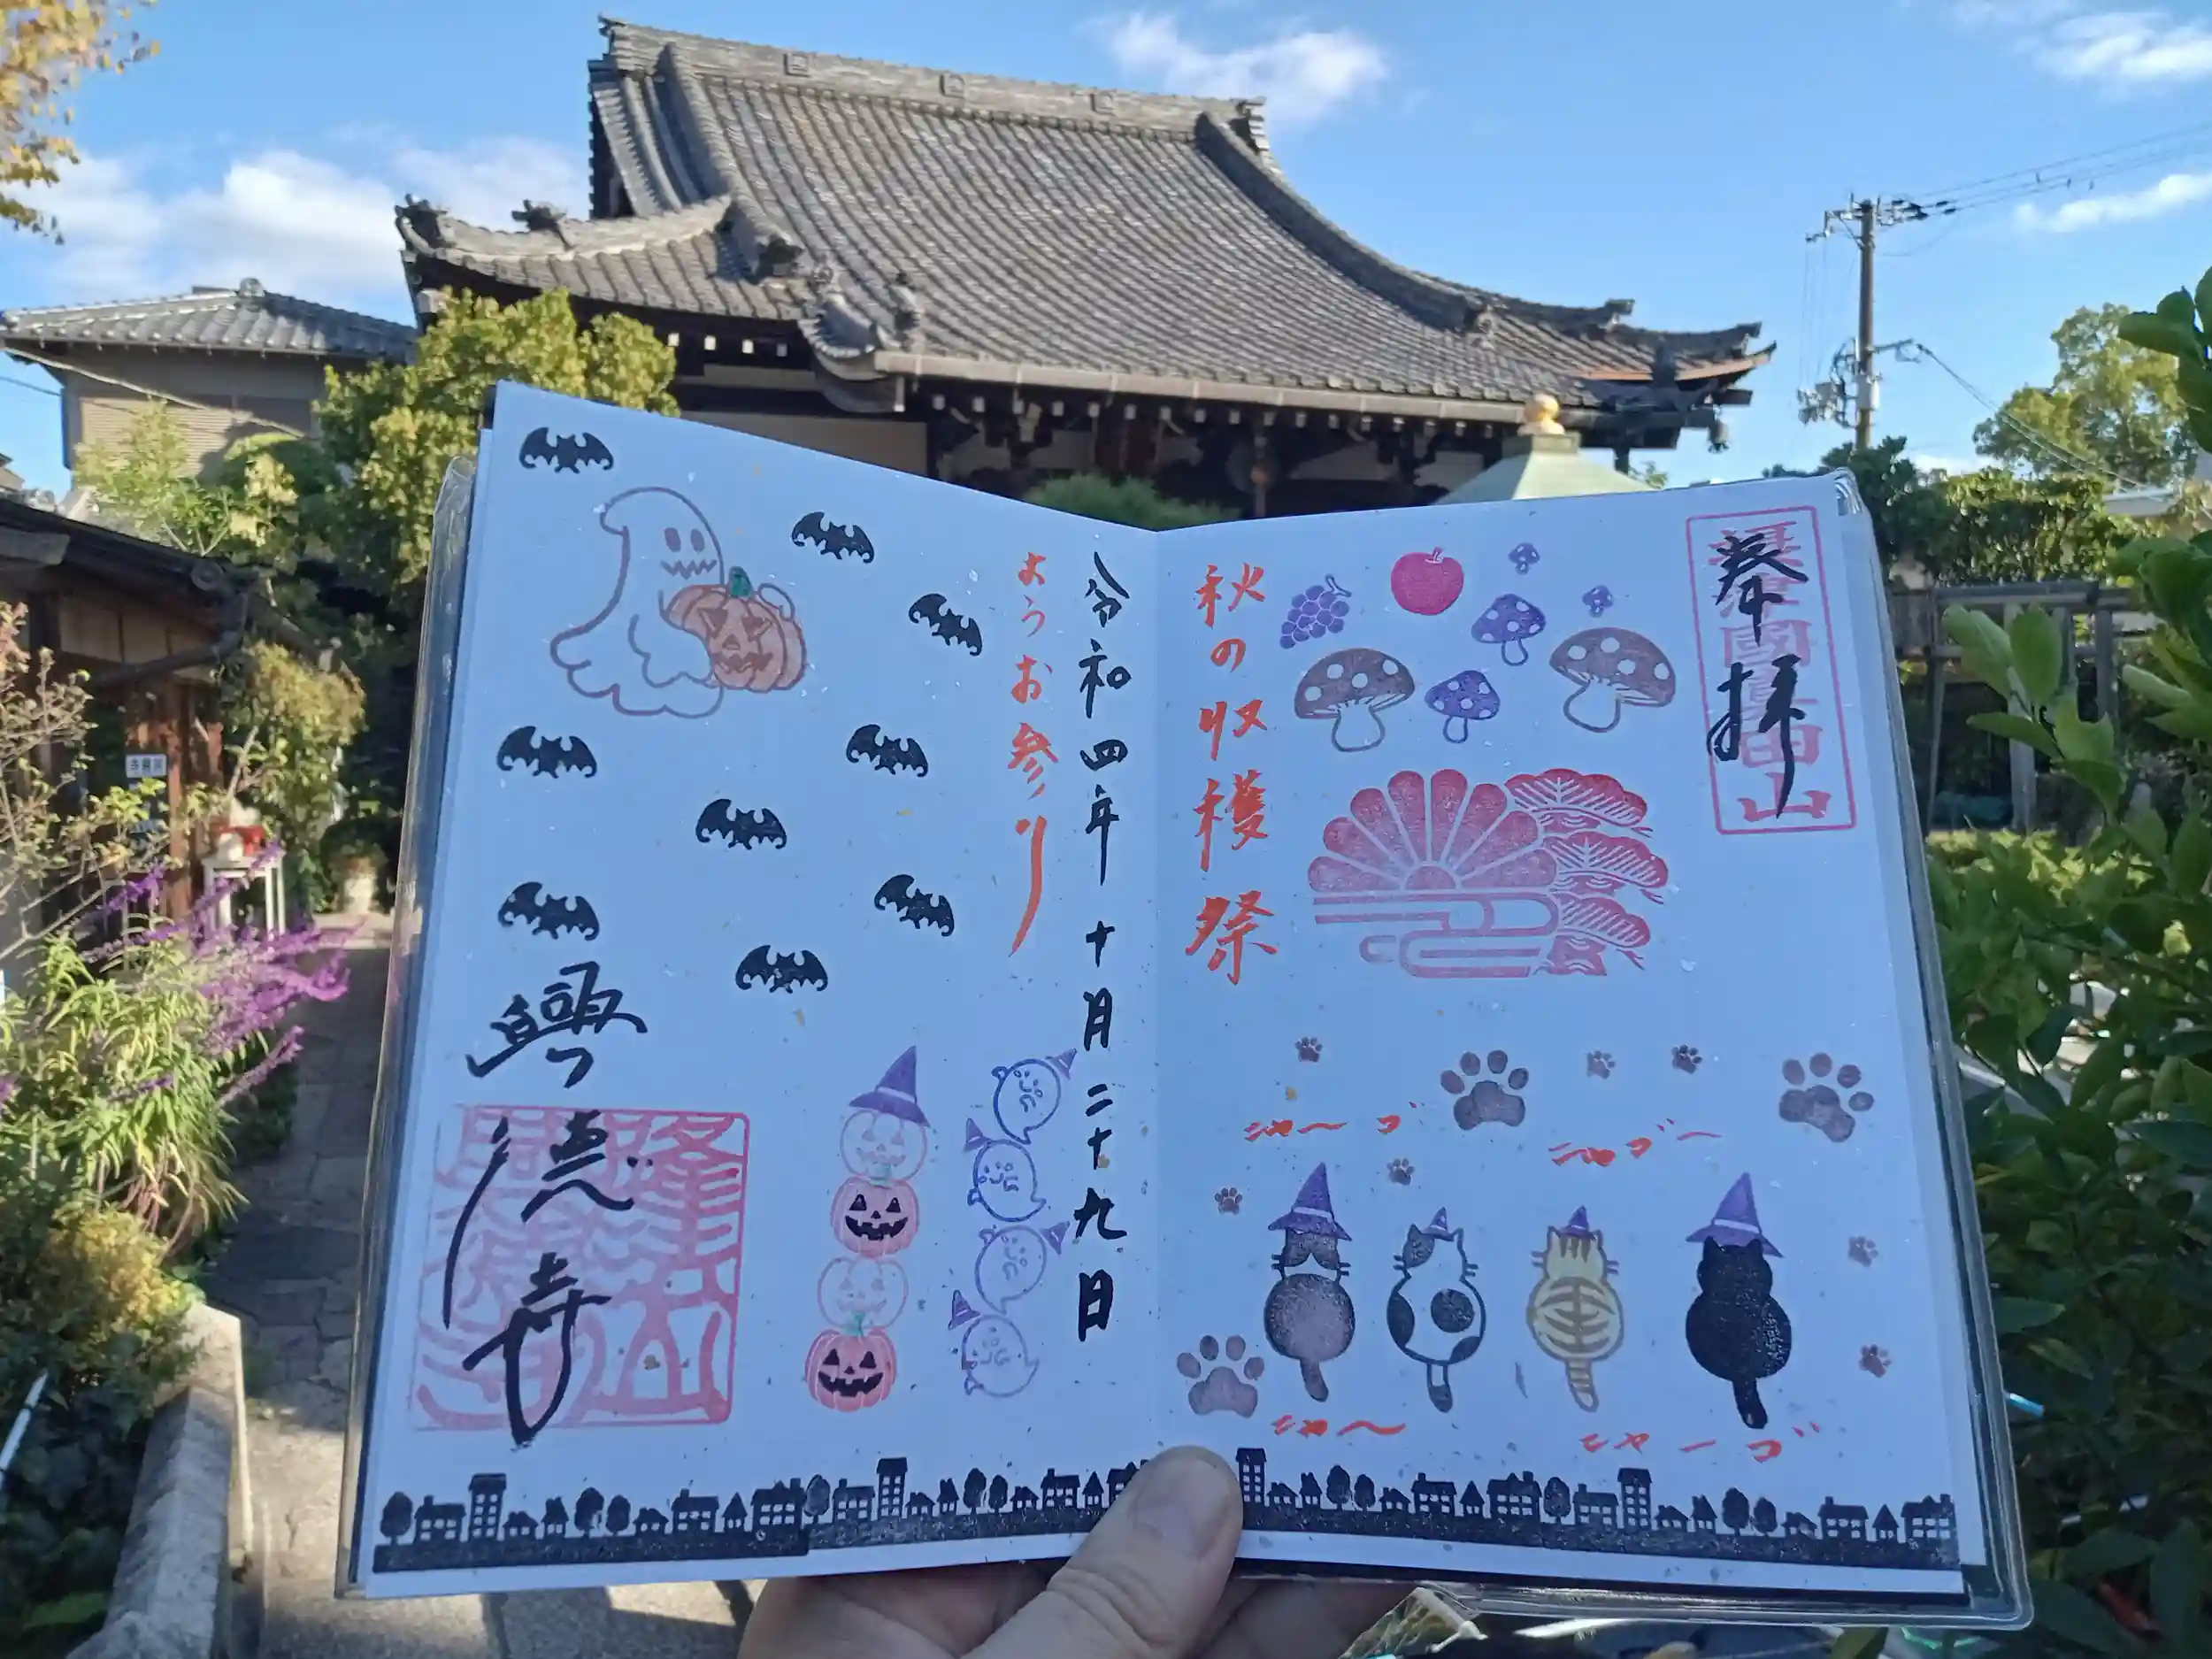 奉拝
秋の収穫祭
ニャーゴ
ニャゴー
ニャー
ニャーゴ
令和四年十月二十九日
ようお参り
興徳寺